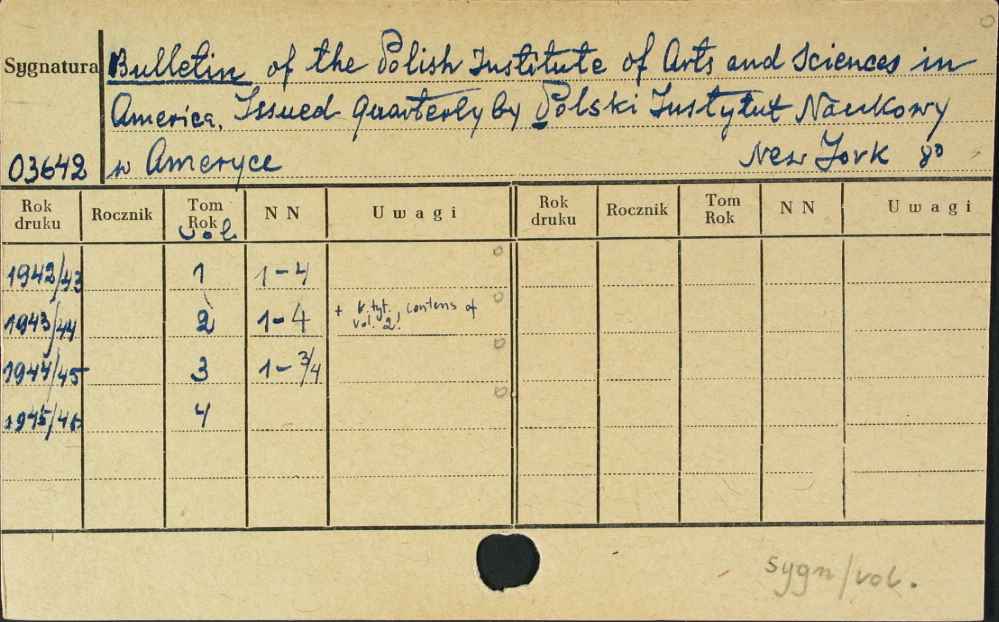 Sygnatura Bulletin of the Polish Institute of Arts and Sciences in
America. Issued quarterly by Polski Instytut Naukowy
03642 w Ameryce New York 8°
Rok druku Rocznik Tom Rok N N Uwagi Rok druku Rocznik Tom Rok N N Uwagi
vol.
1942/43 1 1-4
1943/44 2 1-4 + k.tyt. contens of
vol. 2!
1944/45 3 1-3/4
1945/46 4
sygn/vol.